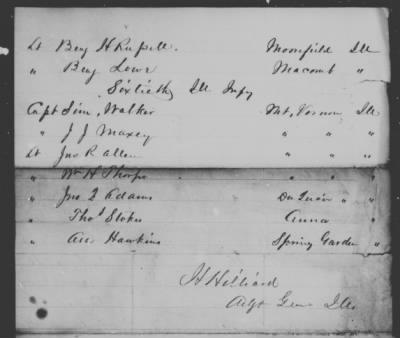 Lt Benj H Russell. Moonfield Ill
" Benj Lowe Macomb "
Sixtieth Ill Infy
Capt Sim. Walker Mt. Vernon Ill
" J J Maxey " " "
Lt Jno R allen " " "
" Wm H Thorpe " " "
" Jno Q Adams Du Quoin " "
" Thos Stokes Anna "
" Hawkins Spring Garden "
H Hilliard
Adjt Genl Ills